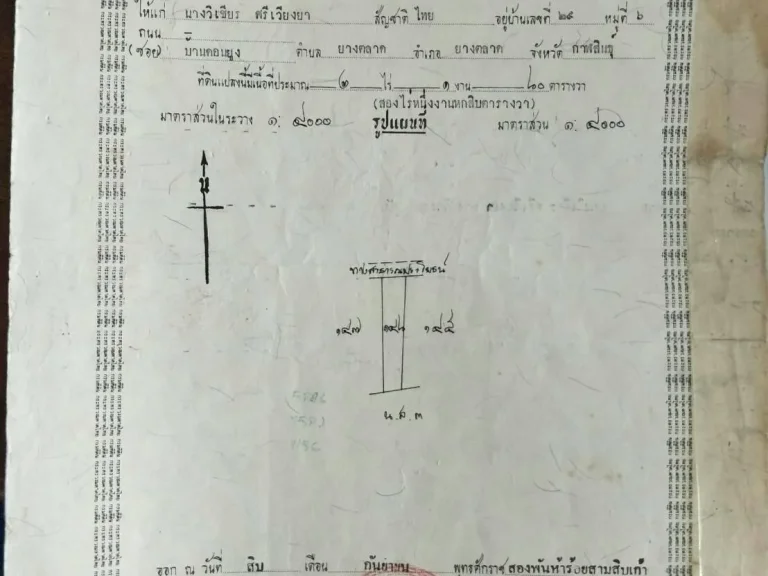 ให้แก่ นางวิเชียร ศรีเวียงยา สัญชาติ ไทย อยู่บ้านเลขที่ ๒๙ หมู่ที่ ๖
ถนน
(ซอย) บ้านดอนยูง ตำบล ยางตลาด อำเภอ ยางตลาด จังหวัด กาฬสินธุ์
ที่ดินแปลงนี้มีเนื้อที่ประมาณ ๒ ไร่ ๑ งาน ๖๐ ตารางวา
(สองไร่หนึ่งงานหกสิบตารางวา)
มาตราส่วนในระวาง ๑: ๔๐๐๐ รูปแผนที่ มาตราส่วน ๑: ๔๐๐๐
น
ทางสาธารณประโยชน์
น.ส.๓
ออก ณ วันที่ สิบ เดือน กันยายน พุทธศักราช สองพันห้าร้อยสามสิบเก้า